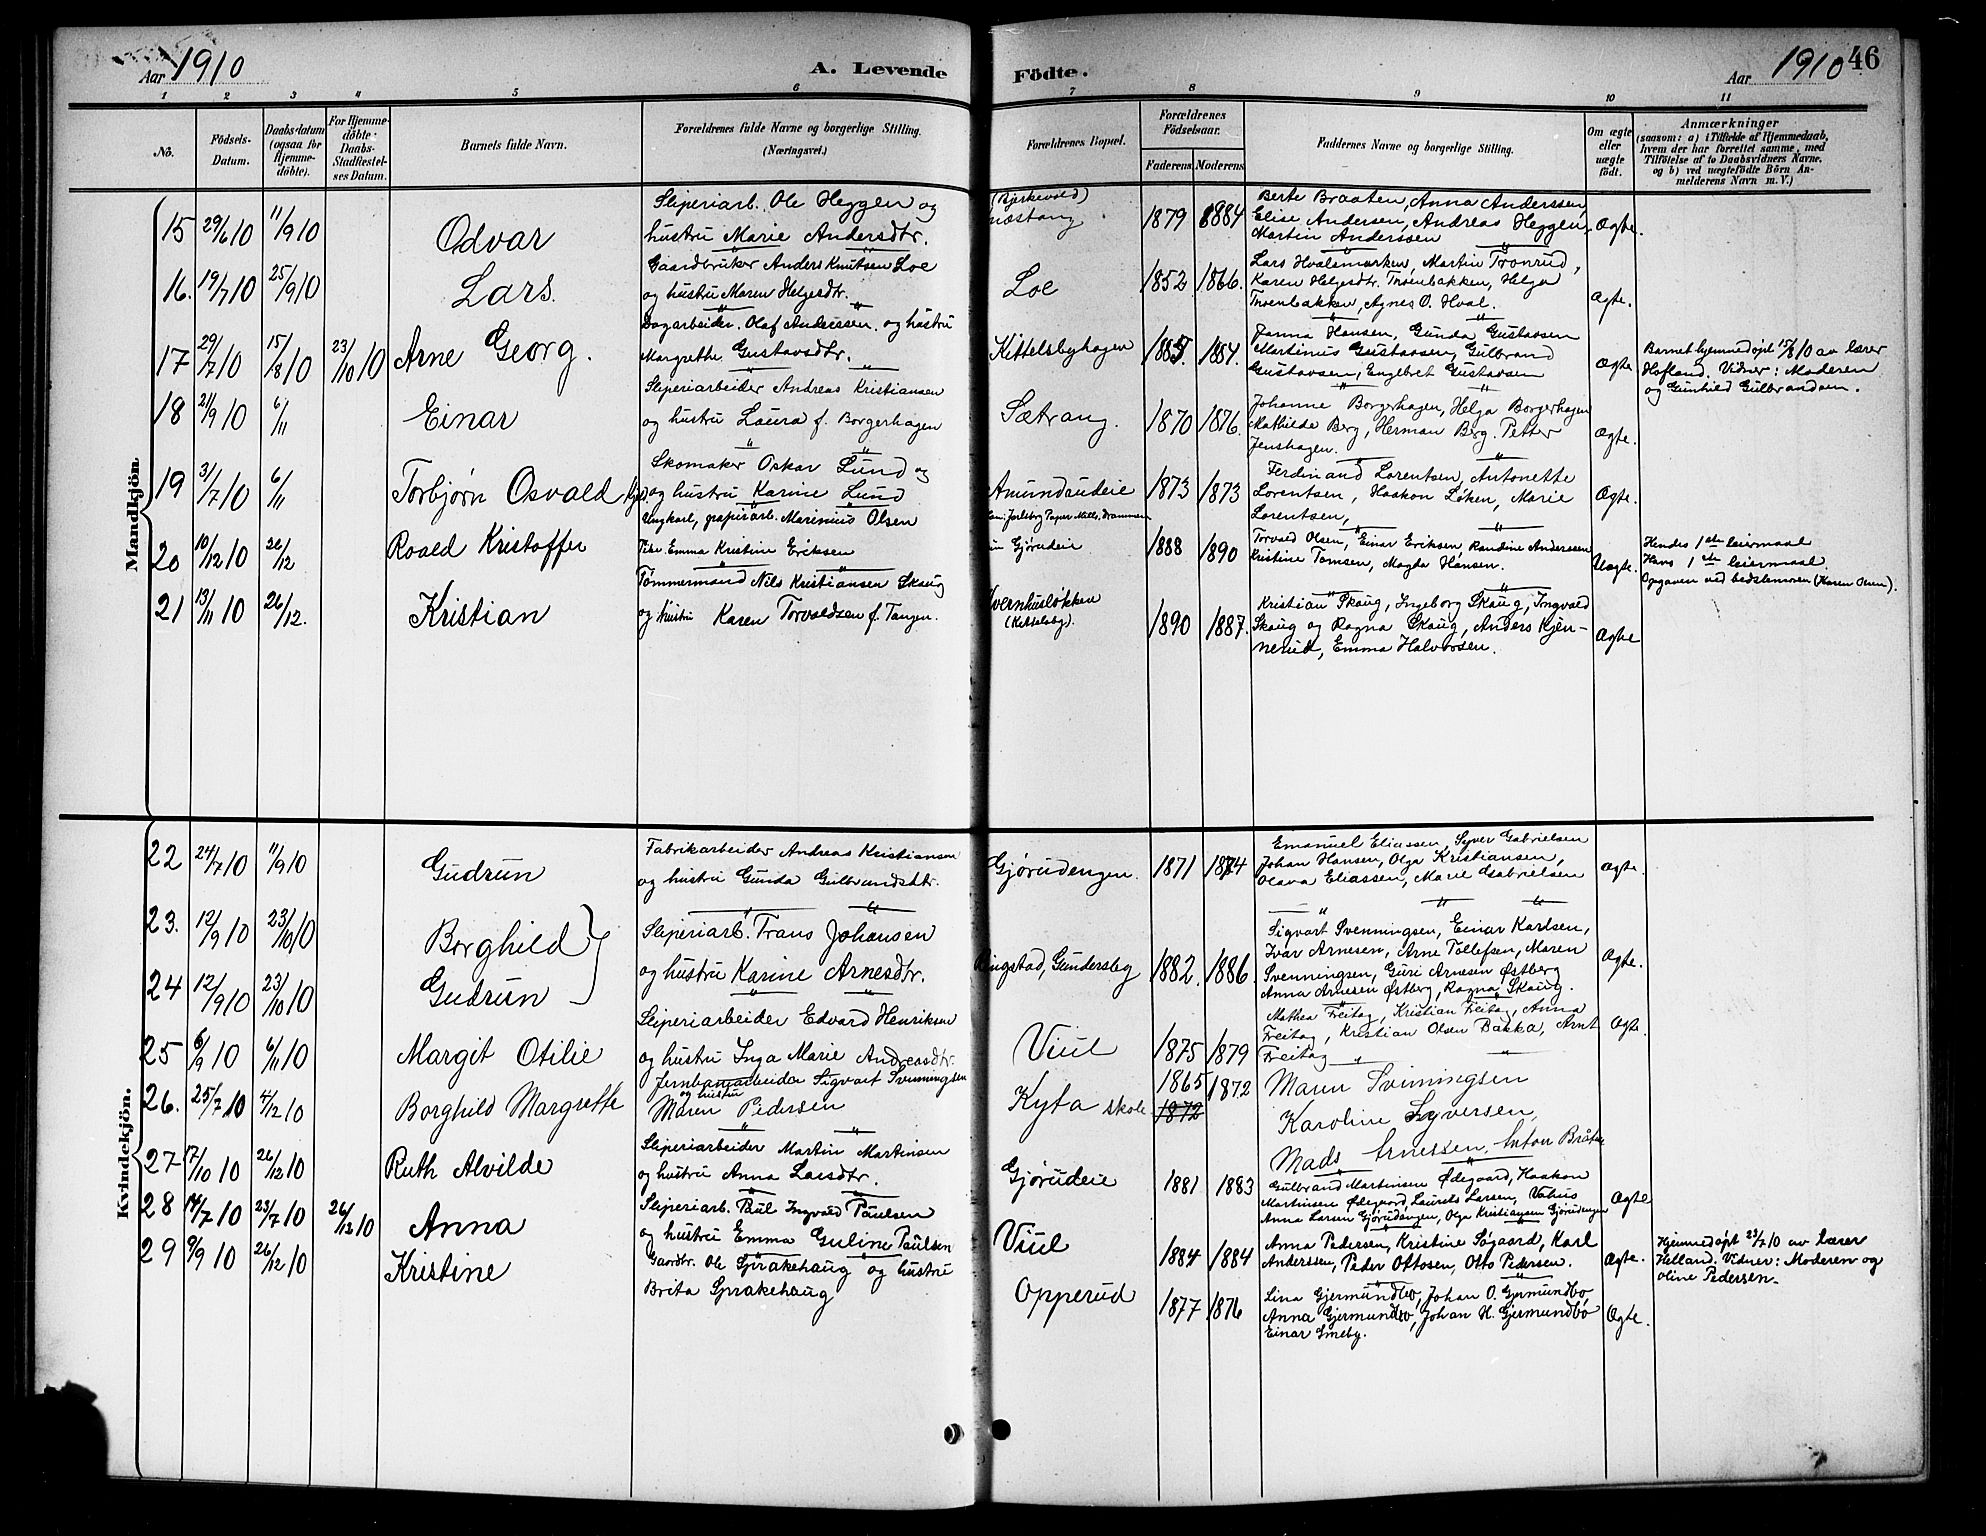 Aar 1910
A. Levende
Födte.
Aar 1910
46
1 2 3 4 5 6 7 8 9 10 11
No.
Födsels-Datum.
Daabsdatum (ogsaa for Hjemmedöbte).
For Hjemmedöbte Daabs-Stadfæstelses Datum.
Barnets fulde Navn.
Forældrenes fulde Navne og borgerlige Stilling. (Næringsvei.)
Forældrenes Bopæl.
Forældrenes Födselsaar.
Faderens. Moderens
Faddernes Navne og borgerlige Stilling.
Om ægte eller uægte födt.
Anmærkninger
(saasom: a) i Tilfælde af Hjemmedaab, hvem der har forrettet samme, med Tilföielse af to Daabsvidners Navne. og b) ved uægtefödte Börn Anmelderens Navn m.V.)
Mandkjön.
15 29/6 10 11/9 10 Odvar
Sliperiarb. Ole Heggen og
hustru Marie Andersdtr.
(Bjerkevold)
1879 1884
Berte Braaten, Anna Anderssen,
Elise Andersen, Andreas Heggen,
Martin Anderssen
Ægte.
16. 19/7 10 25/9 10 Lars.
Gaardbruker Anders Knutsen Loe
og hustru Maren Helgesdtr.
Loe
1852 1866.
Lars Hvalsmarken, Martin Tronrud,
Karen Helgesdtr. Troenbakken, Helga
Troenbakken, Agnes O. Hval.
Ægte.
17 29/7 10 15/8 10 23/10 10 Arne Georg.
Dagarbeider. Olaf Anderssen. og hustru
Margrethe Gustavsdtr.
Kittelsbyhagen
1885 1884.
Janna Hansen, Gunda Gustavsen
Martinius Gustavsen, Gulbrand
Gustavsen, Engebret Gustavsen
Ægte
Barnet hjemmedøpt 15/8 10 av lærer
Hofland. Vidner: Moderen
og Gunhild Gulbrandsen.
18 21/9 10 6/11 Einar
Sliperiarbeider Andreas Kristiansen
og hustru Laura f. Borgerhagen
Sætrang.
1870 1876.
Johanne Borgerhagen, Helga Borgerhagen
Mathilde Berg, Herman Berg. Petter
Jenshagen.
Ægte.
19 3/7 10 6/11 Torbjørn Osvald
Skomaker Oskar Lund og
og hustru Karine Lund
Amundsudeie
1873 1873
Ferdinand Lorentsen, Antonette
Lorentsen, Haakon Løken, Marie
Lorentsen,
Ægte.
20 10/12 10 26/12 Roald Kristoffer
Ungkarl, papirarb. Marinius Olsen
Pike Emma Kristine Eriksen
Gjørudeie
1888 1890
Torvald Olsen, Einar Eriksen, Randine Anderssen
Kristine Tomsen, Magda Hansen.
Uægte.
Hendes 1ste leiermaal
Hans 1ste leiermaal
Opgaven ved bedstemoren (Karen Olsen).
21 13/11 10 26/12. Kristian
Tømmermand Nils Kristiansen Skaug
og hustru Karen Torvaldsen f. Tangen.
Kvernhusløkken
(Kittelsby).
1890 1887.
Kristian Skaug, Ingeborg Skaug, Ingvald
Skaug og Ragna Skaug, Anders Kjen-
nerud, Emma Halvorsen.
Ægte
Kvindekjön.
22 24/7 10 11/9 10 Gudrun
Fabrikarbeider Andreas Kristiansen
og hustru Gunda Gulbrandsdtr.
Gjørudengen.
1871 1874
Emanuel Eliassen, Syver Gabrielsen
Johan Hansen, Olga Kristiansen,
Olava Eliassen, Marie Gabrielsen
Ægte.
23. 12/9 10 23/10 10 Borghild
24 12/9 10 23/10 10 Gudrun
Sliperiarb. Frans Johansen
og hustru Karine Arnesdtr.
Ringstad, Gundersby
1882. 1886
Sigvart Svenningsen, Einar Karlsen,
Ivar Arnesen, Arne Tollefsen, Maren
Svenningsen, Guri Arnesen Østberg
Anna Arnesen Østberg, Ragna Skaug.
Ægte.
25 6/9 10 6/11 10 Margit Otilie
Sliperiarbeider Edvard Henriksen
og hustru Inga Marie Andreasdtr.
Viul
1875 1879
Mathea Freitag, Kristian Freitag, Anna
Freitag, Kristian Olsen Bakka, Arnt
Freitag
Ægte.
26. 25/7 10 4/12 10 Borghild Margrethe
Jernbanearbeider Sigvart Svenningsen
og hustru
Maren Pedersen
Kyta skole
1865 1872
1872
Maren Svenningsen
Karoline Syversen,
Mads Arnessen, Anton Bråten
27 17/10 10 26/12 10 Ruth Alvilde
Sliperiarbeider Martin Martinsen
og hustru Anna Larsdtr.
Gjørudeie
1881 1883
Gulbrand Martinsen Ødegaard, Haakon
Martinsen Ødegaard, Laurits Larsen,
Anna Larsen Gjørudengen, Olga Kristiansen Gjørudengen
Ægte
28 14/7 10 23/7 10 26/12 10 Anna
Sliperiarb. Paul Ingvald Paulsen
og hustru Emma Guline Paulsen
Viul
1884 1884
Anna Pedersen, Kristine Søgaard, Karl
Anderssen, Peder Ottosen, Otto Pedersen.
Ægte.
Hjemmedøpt 23/7 10 av lærer
Helland. Vidner: Moderen og
Oline Pedersen.
29 9/9 10 26/12 10 Kristine
Gaardbr. Ole Sprakehaug og hustru
Brita Sprakehaug
Opperud
1877 1876
Lina Gjermundbo, Johan O. Gjermundbo
Anna Gjermundbo, Johan H. Gjermundbo
Einar Smeby.
Ægte.